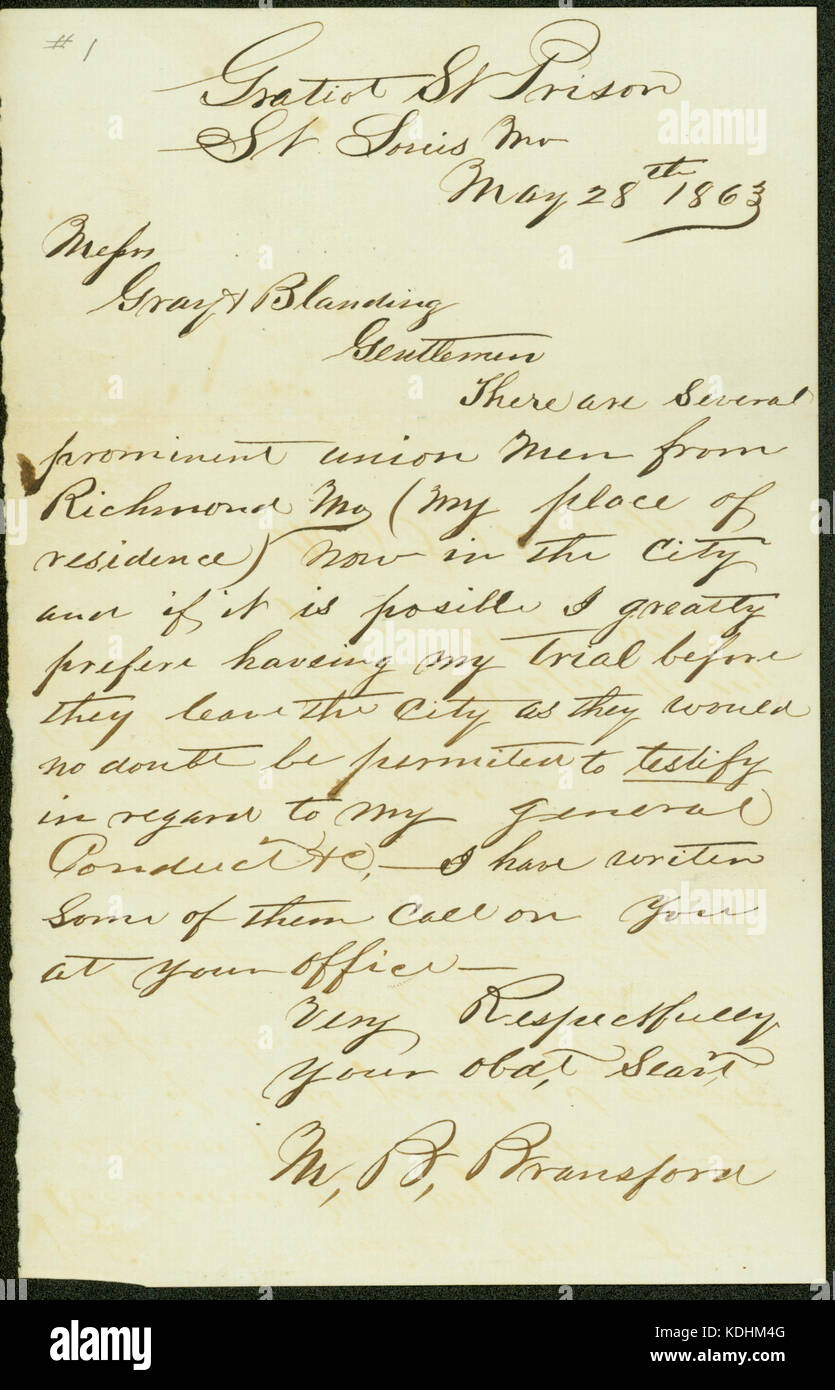 # 1
Gratiot St Prison
St. Louis Mo
May 28th 1863
Messrs
Gray & Blanding
Gentlemen
There are several
prominent union men from
Richmond Mo (my place of
residence) now in the city
and if it is posible I greatly
prefere haveing my trial before
they leave the city as they would
no doubt be permited to testify
in regard to my general
Conduct &c, — I have writen
some of them call on you
at your office —
Very Respectfully
your obdt, Seart,
M, B, Bransford
alamy
www.alamy.com
Image ID: KDHM4G